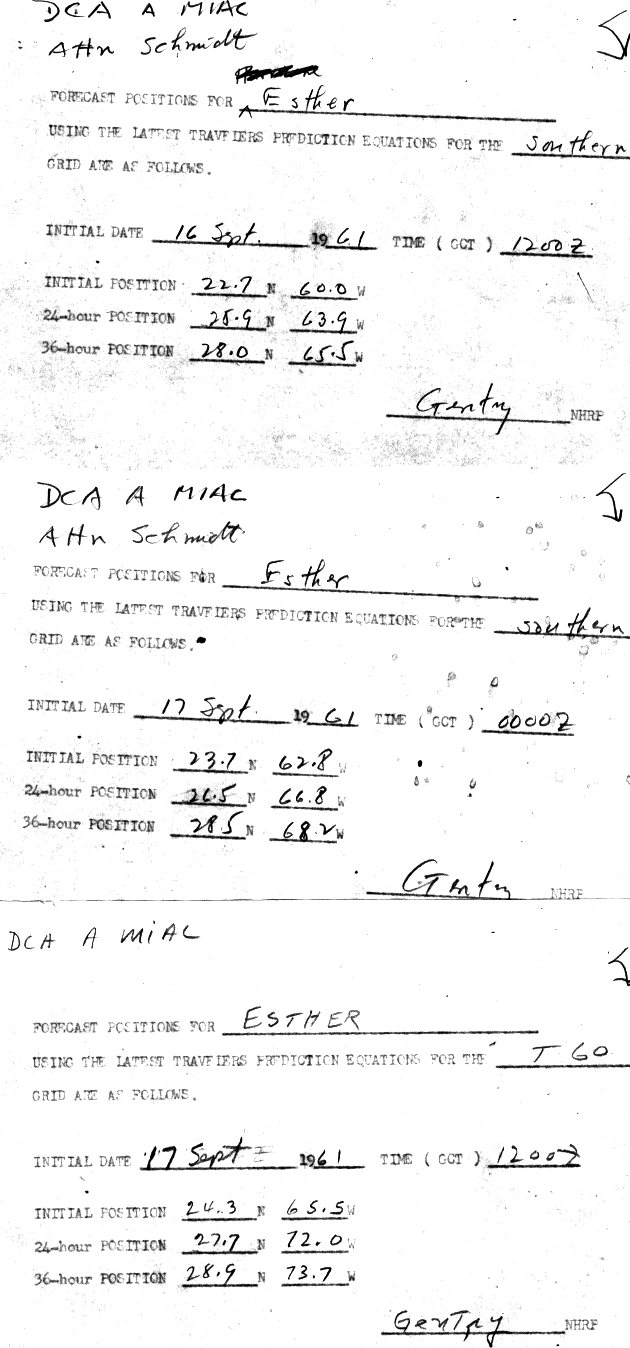 DCA A MIAC
: Attn Schmidt
FORECAST POSITIONS FOR Esther
USING THE LATEST TRAVELERS PREDICTION EQUATIONS FOR THE southern
GRID ARE AS FOLLOWS.
INITIAL DATE 16 Sept. 1961 TIME ( GCT ) 1200Z
INITIAL POSITION 22.7 N 60.0 W
24-hour POSITION 25.9 N 63.9 W
36-hour POSITION 28.0 N 65.5 W
Gentry NHRP
DCA A MIAC
Attn Schmidt
FORECAST POSITIONS FOR Esther
USING THE LATEST TRAVELERS PREDICTION EQUATIONS FOR THE southern
GRID ARE AS FOLLOWS.
INITIAL DATE 17 Sept. 1961 TIME ( GCT ) 0000Z
INITIAL POSITION 23.7 N 62.8 W
24-hour POSITION 26.5 N 66.8 W
36-hour POSITION 28.5 N 68.2 W
Gentry NHRP
DCA A MIAC
FORECAST POSITIONS FOR ESTHER
USING THE LATEST TRAVELERS PREDICTION EQUATIONS FOR THE T 60
GRID ARE AS FOLLOWS.
INITIAL DATE 17 Sept 1961 TIME ( GCT ) 1200Z
INITIAL POSITION 24.3 N 65.5 W
24-hour POSITION 27.7 N 72.0 W
36-hour POSITION 28.9 N 73.7 W
GenTry NHRP